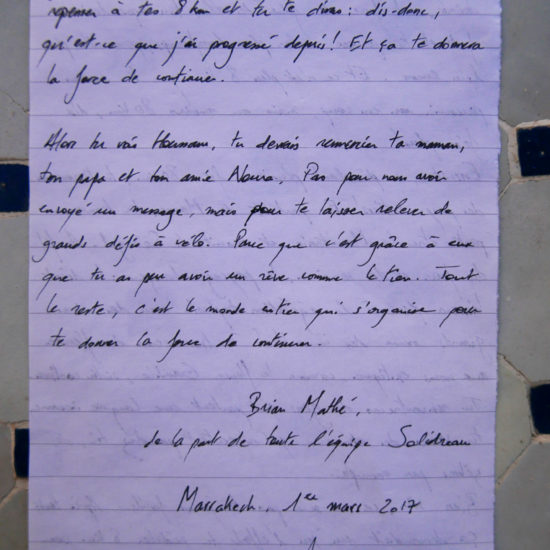 repenser à tes 8 km et tu te diras : dis-donc,
qu'est-ce que j'ai progressé depuis ! Et ça te donnera
la force de continuer.
Alors tu vois Houmam, tu devrais remercier ta maman,
ton papa et ton amie Noura. Pas pour nous avoir
envoyé un message, mais pour te laisser relever de
grands défis à vélo. Parce que c'est grâce à eux
que tu as peu avoir un rêve comme le tien. Tout
le reste, c'est le monde entier qui s'organise pour
te donner la force de continuer.
Brian Mathé,
de la part de toute l'équipe Solidream
Marrakech, 1er mars 2017